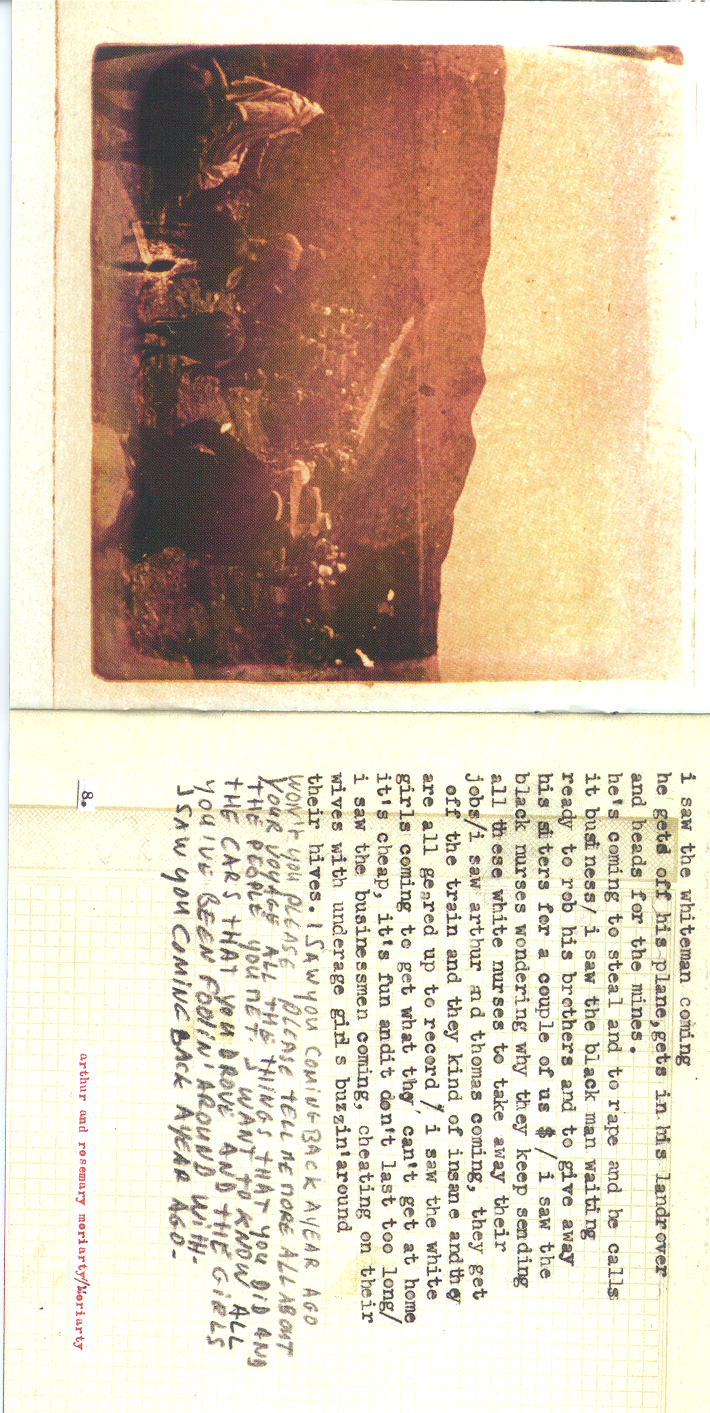 i saw the whiteman coming
he gets off his plane,gets in his landrover
and heads for the mines.
he's coming to steal and to rape and he calls
it business/ i saw the black man waiting
ready to rob his brothers and to give away
his sisters for a couple of us $ / i saw the
black nurses wondering why they keep sending
all these white nurses to take away their
jobs/i saw arthur and thomas coming, they get
off the train and they kind of insane andthey
are all geared up to record / i saw the white
girls coming to get what they can't get at home
it's cheap, it's fun andit don't last too long/
i saw the businessmen coming, cheating on their
wives with underage girls buzzin'around
their hives. I SAW YOU COMING BACK A YEAR AGO
WON'T YOU PLEASE PLEASE TELL ME MORE ALL ABOUT
YOUR VOYAGE ALL THE THINGS THAT YOU DID AND
THE PEOPLE YOU MET. I WANT TO KNOW ALL
THE CARS THAT YOU DROVE AND THE GIRLS
YOU'VE BEEN FOOLIN' AROUND WITH-
I SAW YOU COMING BACK A YEAR AGO-
8.
arthur and rosemary moriarty/Moriarty